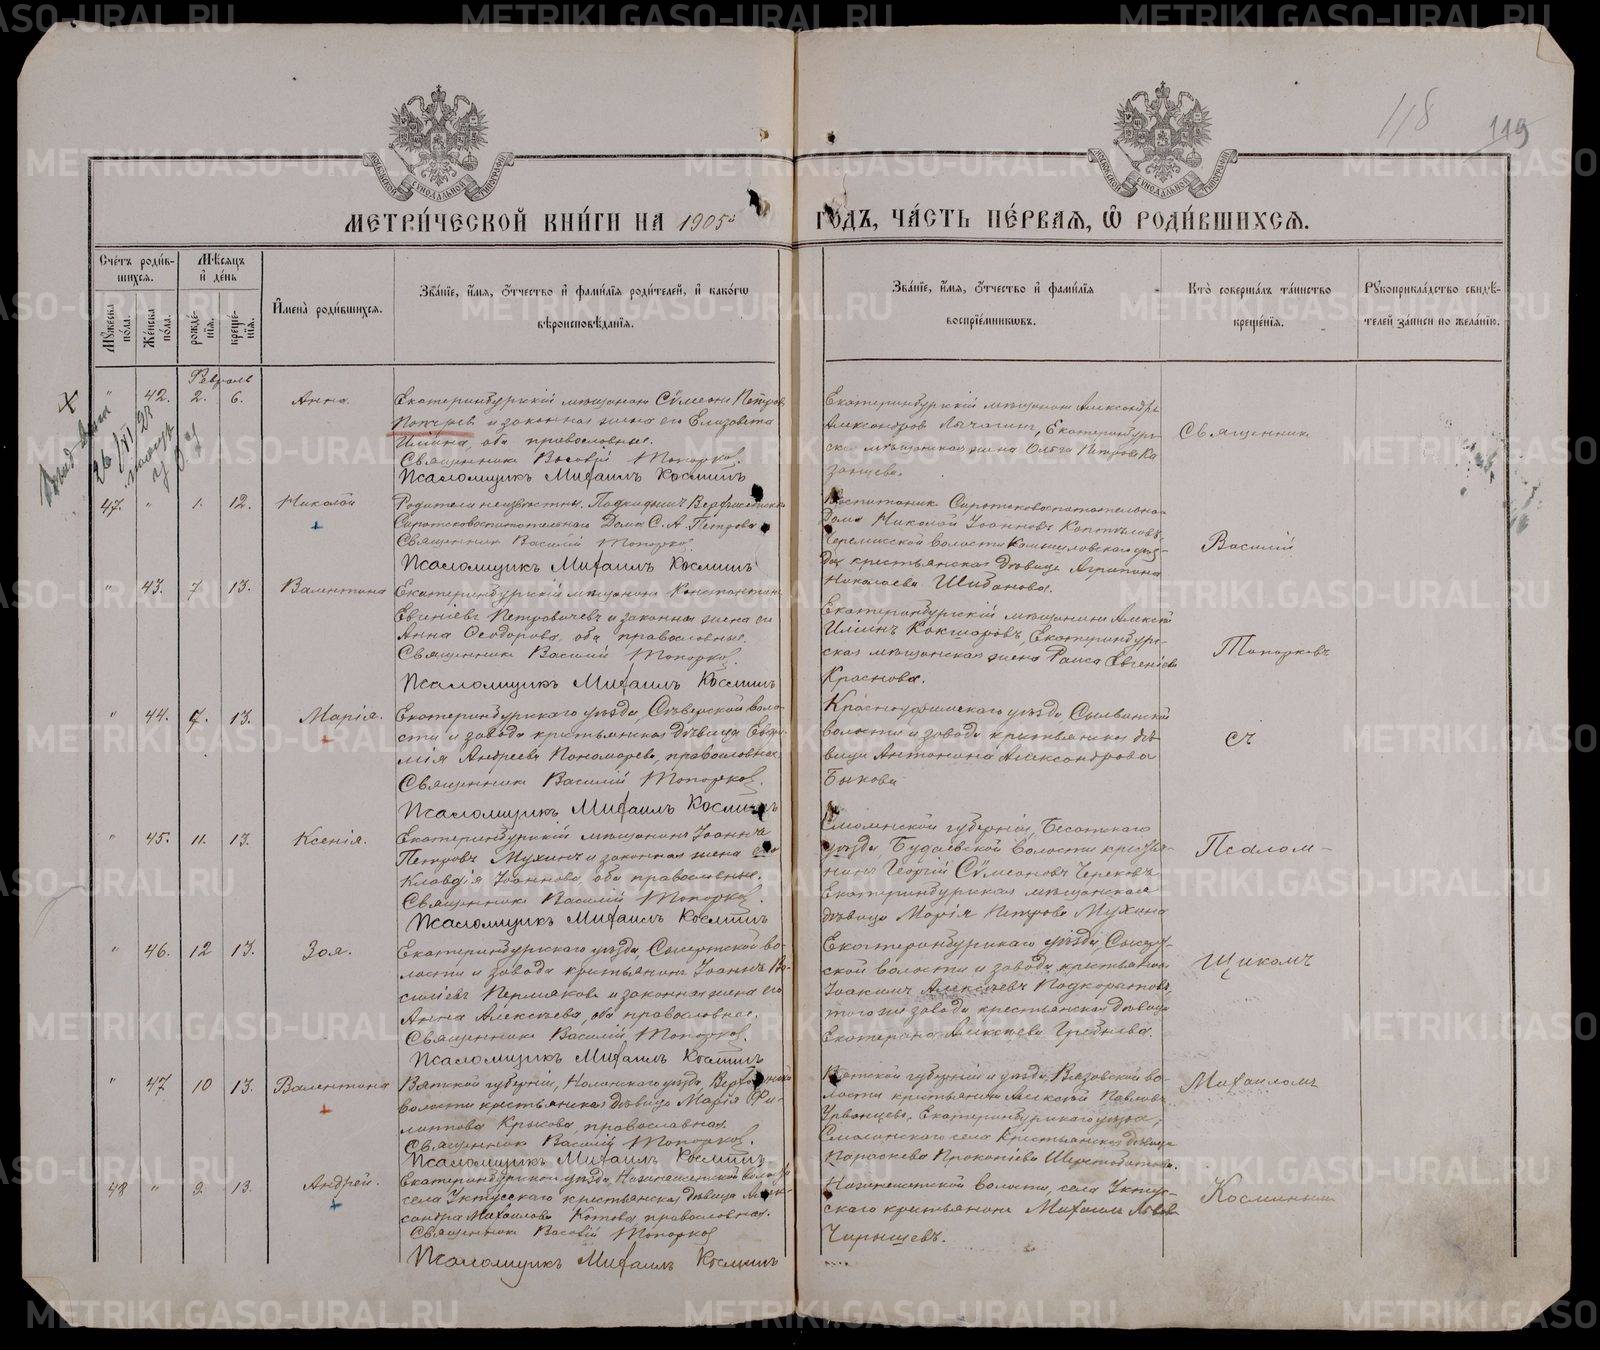 118
119
МОСКОВСКОЙ СѴНОДАЛЬНОЙ ТИПОГРАФІИ
МОСКОВСКОЙ СѴНОДАЛЬНОЙ ТИПОГРАФІИ
МЕТРИ́ЧЕСКОЙ КНИ́ГИ НА 1905й ГО́ДЪ, ЧА́СТЬ ПЕ́РВАЯ, Ѽ РОДИ́ВШИХСЯ.
Счётъ роди́в-
шихся.
Мѣ́сяцъ
и҆ де́нь
Мꙋ́жеска по́ла.
Же́нска по́ла.
рожде́-
нїѧ.
креще́-
нїѧ.
И҆мена̀ роди́вшихся.
Зва́нїе, и҆́мя, ѻ҆́тчество и҆ фами́лїя роди́телей, и҆ како́гѡ
вѣроисповѣ́данїя.
Зва́нїе, и҆́мя, ѻ҆́тчество и҆ фами́лїя
воспрїе́мникѡвъ.
Кто̀ соверша́лъ та́инство
креще́нїя.
Рꙋкоприкла́дство свидѣ́-
телей за́писи по жела́нїю.
Февраль
" 42. 2. 6. Анна.
Екатеринбургскій мѣщанинъ Сѵмеонъ Петровъ
и законная жена его Елизавета
Ильина, оба православные.
Священникъ Василій Топорков.
Псаломщикъ Михаилъ Косминъ
Екатеринбургскій мѣщанинъ Александръ
Александровъ Лычагинъ, Екатеринбург-
ская мѣщанская жена Ольга Петрова Ка-
занцева.
Священник
47. " 1. 12. Николай
Родители неизвѣстны. Подкидышъ Верхисетскаго
Сиротсковоспитательнаго Дома С. А. Петрова
Священник Василій Топорков.
Псаломщикъ Михаилъ Косминъ
Воспитаник Сиротсковоспитательнаго
Дома Николай Іоанновъ
волости Камышловскаго уѣз-
да крестьянская дѣвица Агрипина
Николаева Шибанова.
Василій
" 43. 7. 13. Валентина
Екатеринбургскій мѣщанинъ Константинъ
Евгеніевъ Петровичевъ и законная жена его
Анна Ѳеодорова, оба православные.
Священникъ Василій Топорков.
Псаломщикъ Михаилъ Косминъ
Екатеринбургскій мѣщанинъ Алексѣй
Ильинъ Кокшаровъ, Екатеринбург-
ская мѣщанская жена Раиса Евгеніева
Краснова.
Топорковъ
" 44. 7. 13. Марія.
Екатеринбургскаго уѣзда, Сѣверской воло-
сти и завода крестьянская дѣвица Евфи-
мія Андреева Пономарева, православная
Священникъ Василій Топорков.
Псаломщикъ Михаилъ Косминъ
Красноуфимскаго уѣзда, Сылвинской
волости и завода крестьянская дѣ-
вица Антонина Александрова
Быкова
съ
" 45. 11. 13. Ксенія.
Екатеринбургскій мѣщанинъ Іоаннъ
Петровъ Мухинъ и законная жена его
Клавдія Іоаннова, оба православные.
Священникъ Василій Топорков.
Псаломщикъ Михаилъ Косминъ
Смоленской губерніи,
уѣзда, Будаевской волости крестья-
нинъ Георгій Сѵмеоновъ
Екатеринбургская мѣщанская
дѣвица Марія Петрова Мухина
Псалом-
" 46. 12 13. Зоя.
Екатеринбургскаго уѣзда, Сысертской во-
лости и завода крестьянинъ Іоаннъ Ва-
сильевъ Пермяковъ и законная жена его
Анна Алексѣева, оба православные.
Священникъ Василій Топорков.
Псаломщикъ Михаилъ Косминъ
Екатеринбургскаго уѣзда, Сысерт-
ской волости и завода крестьянинъ
Іоакимъ Алексѣевъ Подкорытовъ,
того же завода крестьянская дѣвица
Екатерина Алексѣева
щикомъ
" 47 10 13. Валентина
Вятской губерніи, Нолинскаго уѣзда,
волости крестьянская дѣвица Марія Фи-
липпова Крысова, православная
Священник Василій Топорков.
Псаломщикъ Михаилъ Косминъ
Вятской губерніи и уѣзда, Вязовской во-
лости крестьянинъ Алексѣй Павловъ
Урванцевъ, Екатеринбургскаго уѣзда,
Смолинскаго села Крестьянская дѣвица
Параскева Прокопіева Шерстобитова.
Михаиломъ
48 " 9. 13. Андрей.
Екатеринбургскаго уѣзда, волости
села Уктусскаго крестьянская дѣвица Алек-
сандра Михаилова Котова, православная.
Священник Василій Топорков
Псаломщикъ Михаилъ Косминъ
волости, села Уктус-
скаго крестьянинъ Михаилъ Львовъ
Чирышевъ.
Косминымъ